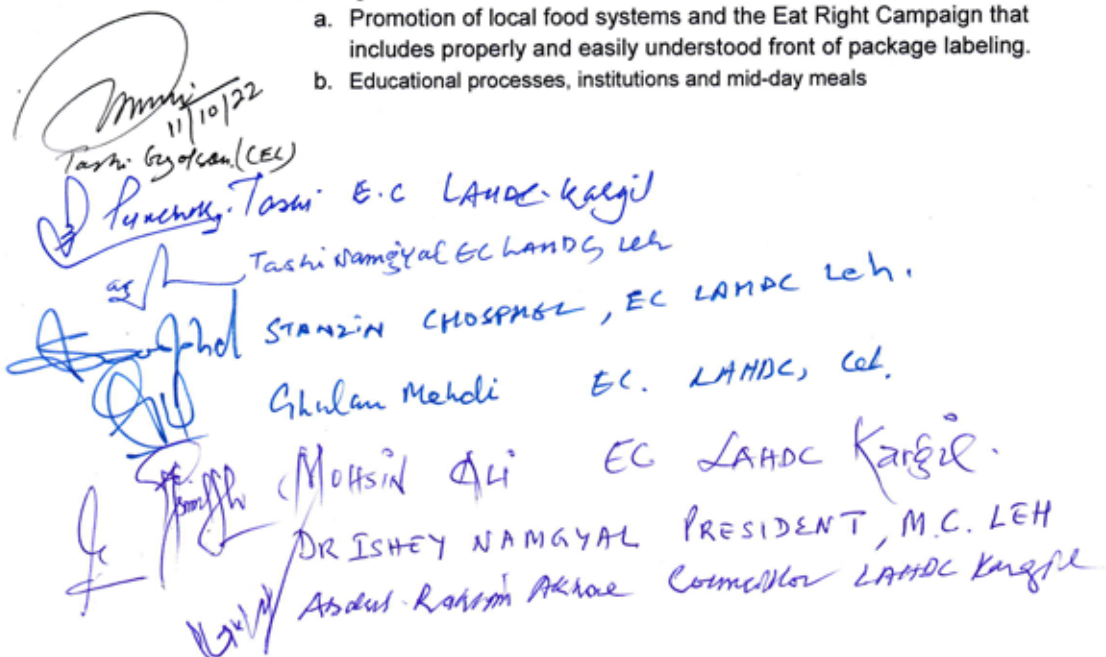 a. Promotion of local food systems and the Eat Right Campaign that
includes properly and easily understood front of package labeling.
b. Educational processes, institutions and mid-day meals
11/10/22
Tashi (CEC)
Tashi E.C LAHDC-Kargil
Tashi Namgyal EC LAHDC, Leh
STANZIN CHOSPHEL, EC LAHDC Leh.
Ghulam Mehdi EC. LAHDC, Leh.
MOHSIN ALI EC LAHDC Kargil.
DR ISHEY NAMGYAL PRESIDENT, M.C. LEH
Abdul Rahim Councillor LAHDC Kargil